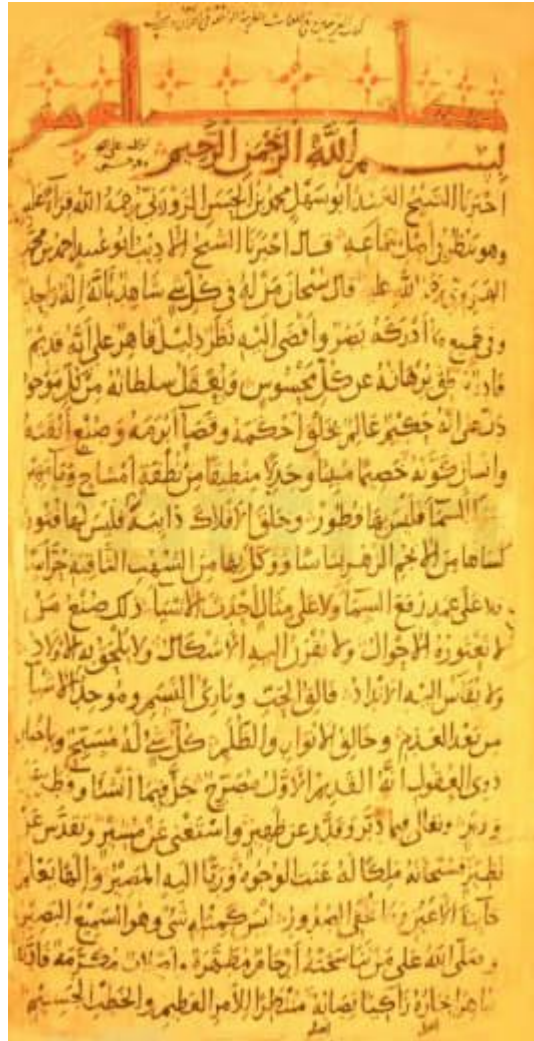 كتاب الغريبين في
كتاب الغريبين
بسم الله الرحمن الرحيم
اخبرنا الشيخ العميد ابو سهل محمد بن الحسن الزوزني رحمه الله قراة عليه
وهو ينظر في اصل سماعه قال اخبرنا الشيخ الاديب ابو عبيد احمد بن محمد
الهروي رحمة الله عليه قال سبحان من له في كل شي شاهد بانه اله واحد
وفي جميع ما ادركه بصر وافضى اليه نظر دليل قاهر على انه قديم
قادر برهانه عن كل محسوس ويعقل سلطانه من كل موجود
دل على انه حكيم عالم بخلق احكمه وقضا ابرمه وصنع اتقنه
وانسان كونه خصيما مبينا وجدلا منطيقا من نطفة امشاج
السما فليس بها فطور وخلق الافلاك دايبة فليس لها فتور
كساها من الانجم الزهر لباسا ووكل بها من الشهب الثاقبة حراسا
ولا على عمد رفع السما ولا على مثال احدث الاشيا ذلك صنع من
لا تعتوره الاحوال ولا تقترن اليه الاشكال ولا يلحق به الاولاد
ولا يقاس اليه الانداد فالق الحب وبارئ النسم وموجد الاشيا
من بعد العدم وخالق الانوار والظلم كل شي له مسبح
ذوي العقول انه القديم الاول مصرح جل فيما انشا
ودبر وتعالى فيما ذبر وقدر عن ظهير واستغنى عن مشير وتقدس عن
نظير فسبحانه ملكا له عنت الوجوه وربا اليه المصير والها يعلم
خاينة الاعين وما تخفي الصدور ليس كمثله شي وهو السميع البصير
وصلى الله على من تناسخته ارحام مطهرة واصلاب مكرمة
منتظرا للامر العظيم والخطب الجسيم